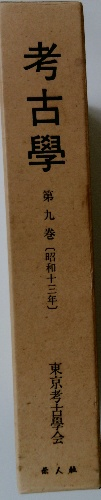 考古學
第九巻〔昭和十三年〕
東京考古學会